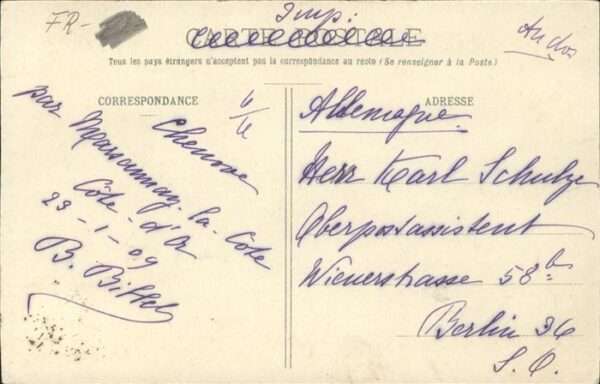 FR-
Imp.
CARTE POSTALE
Au dos
Tous les pays étrangers n'acceptent pas la correspondance au recto (Se renseigner à la Poste)
CORRESPONDANCE
Chenove
par Marsannay-la-Côte
Côte-d'Or
23-1-09
B. Bittel
ADRESSE
Allemagne.
Herr Karl Schulze
Oberpostassistent
Wienerstrasse 58b
Berlin 36
S. O.